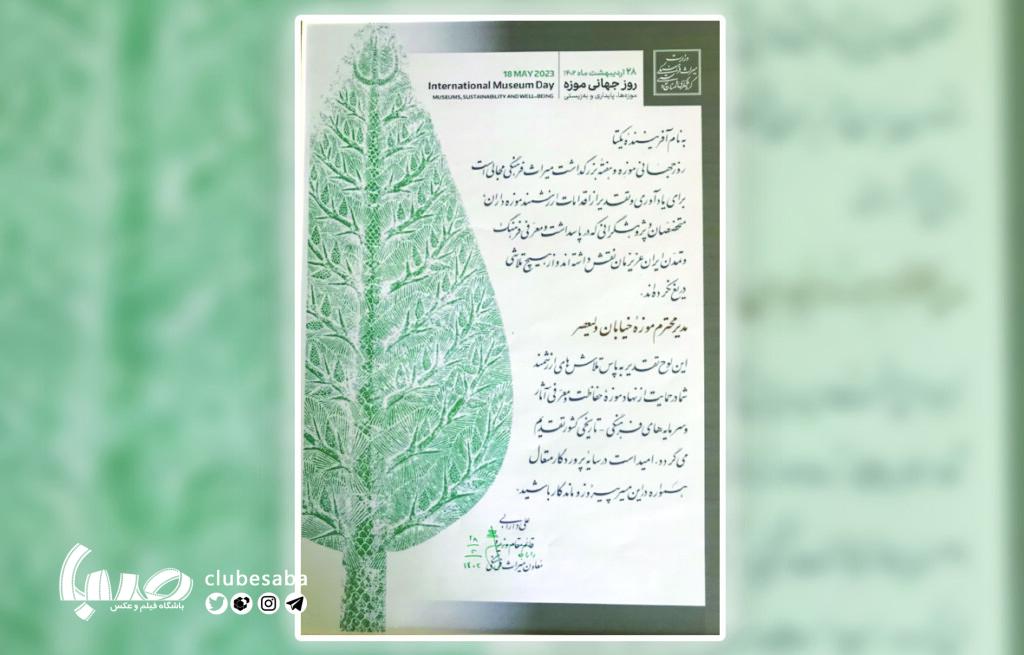 ۲۸ اردیبهشت ماه ۱۴۰۲
روز جهانی موزه
موزه‌ها، پایداری و به‌زیستی
18 MAY 2023
International Museum Day
MUSEUMS, SUSTAINABILITY AND WELL-BEING
به نام آفریننده یکتا
روز جهانی موزه و هفته بزرگداشت میراث فرهنگی مجالی است
برای یادآوری و تقدیر از اقدامات ارزشمند موزه داران،
متخصصان و پژوهشگرانی که در پاسداشت و معرفی فرهنگ
و تمدن ایران عزیزمان نقش داشته اند و از هیچ تلاشی
دریغ نکرده‌اند.
مدیر محترم موزه خیابان ولیعصر
این لوح تقدیر به پاس تلاش های ارزشمند
شما در حمایت از نهاد موزه حفاظت و معرفی آثار
و سرمایه های فرهنگی - تاریخی کشور تقدیم
می گردد. امید است در سایه پروردگار متعال
همواره در این مسیر پیروز و ماندگار باشید.
علی دارابی
قائم مقام وزیر و
معاون میراث فرهنگی
۲۸
۲
۱۴۰۲
صبا
باشگاه فیلم و عکس
clubesaba